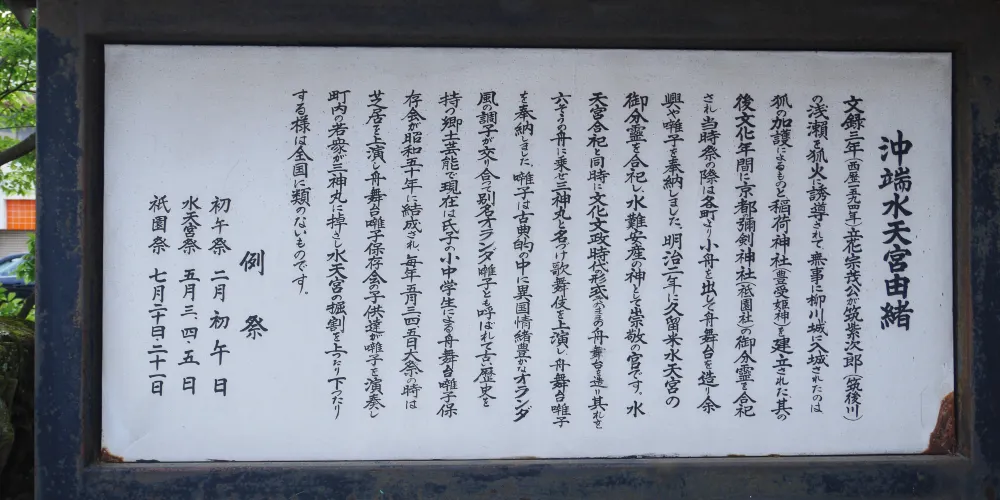 沖端水天宮由緒
文録三年(西歴一五九四年)立花宗茂公が筑紫次郎(筑後川)
の浅瀬を狐火に誘導されて無事に柳川城に入城されたのは
狐の加護によるものと稲荷神社(豊受姫神)を建立された其の
後文化年間に京都彌剣神社(祇園社)の御分霊を合祀
され当時祭の際は各町より小舟を出して舟舞台を造り余
興や囃子を奉納しました。明治二年に久留米水天宮の
御分霊を合祀し、水難安産の神として崇敬の宮です。水
天宮合祀と同時に文化文政時代の形式そのままの舟舞台を造り其れを
六そうの舟に乗せ三神丸と名つけ歌舞伎を上演し、舟舞台囃子
を奉納しました。囃子は古典的の中に異国情緒豊かなオランダ
風の調子が交り合って別名オランダ囃子とも呼ばれて古い歴史を
持つ郷土芸能で現在は氏子の小中学生による舟舞台囃子保
存会が昭和五十年に結成され、毎年五月三四五日大祭の時は
芝居を上演し舟舞台囃子保存会の子供達が囃子を演奏し
町内の若衆が三神丸に棹さし水天宮の掘割を上ったり下ったり
する様は全国に類のないものです。
例祭
初午祭 二月初午日
水天宮祭 五月三、四、五日
祇園祭 七月二十日・二十一日